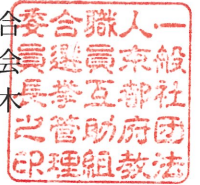 合
会
一般社団法
人京都府教
職員互助組
合選挙管理
委員長之印